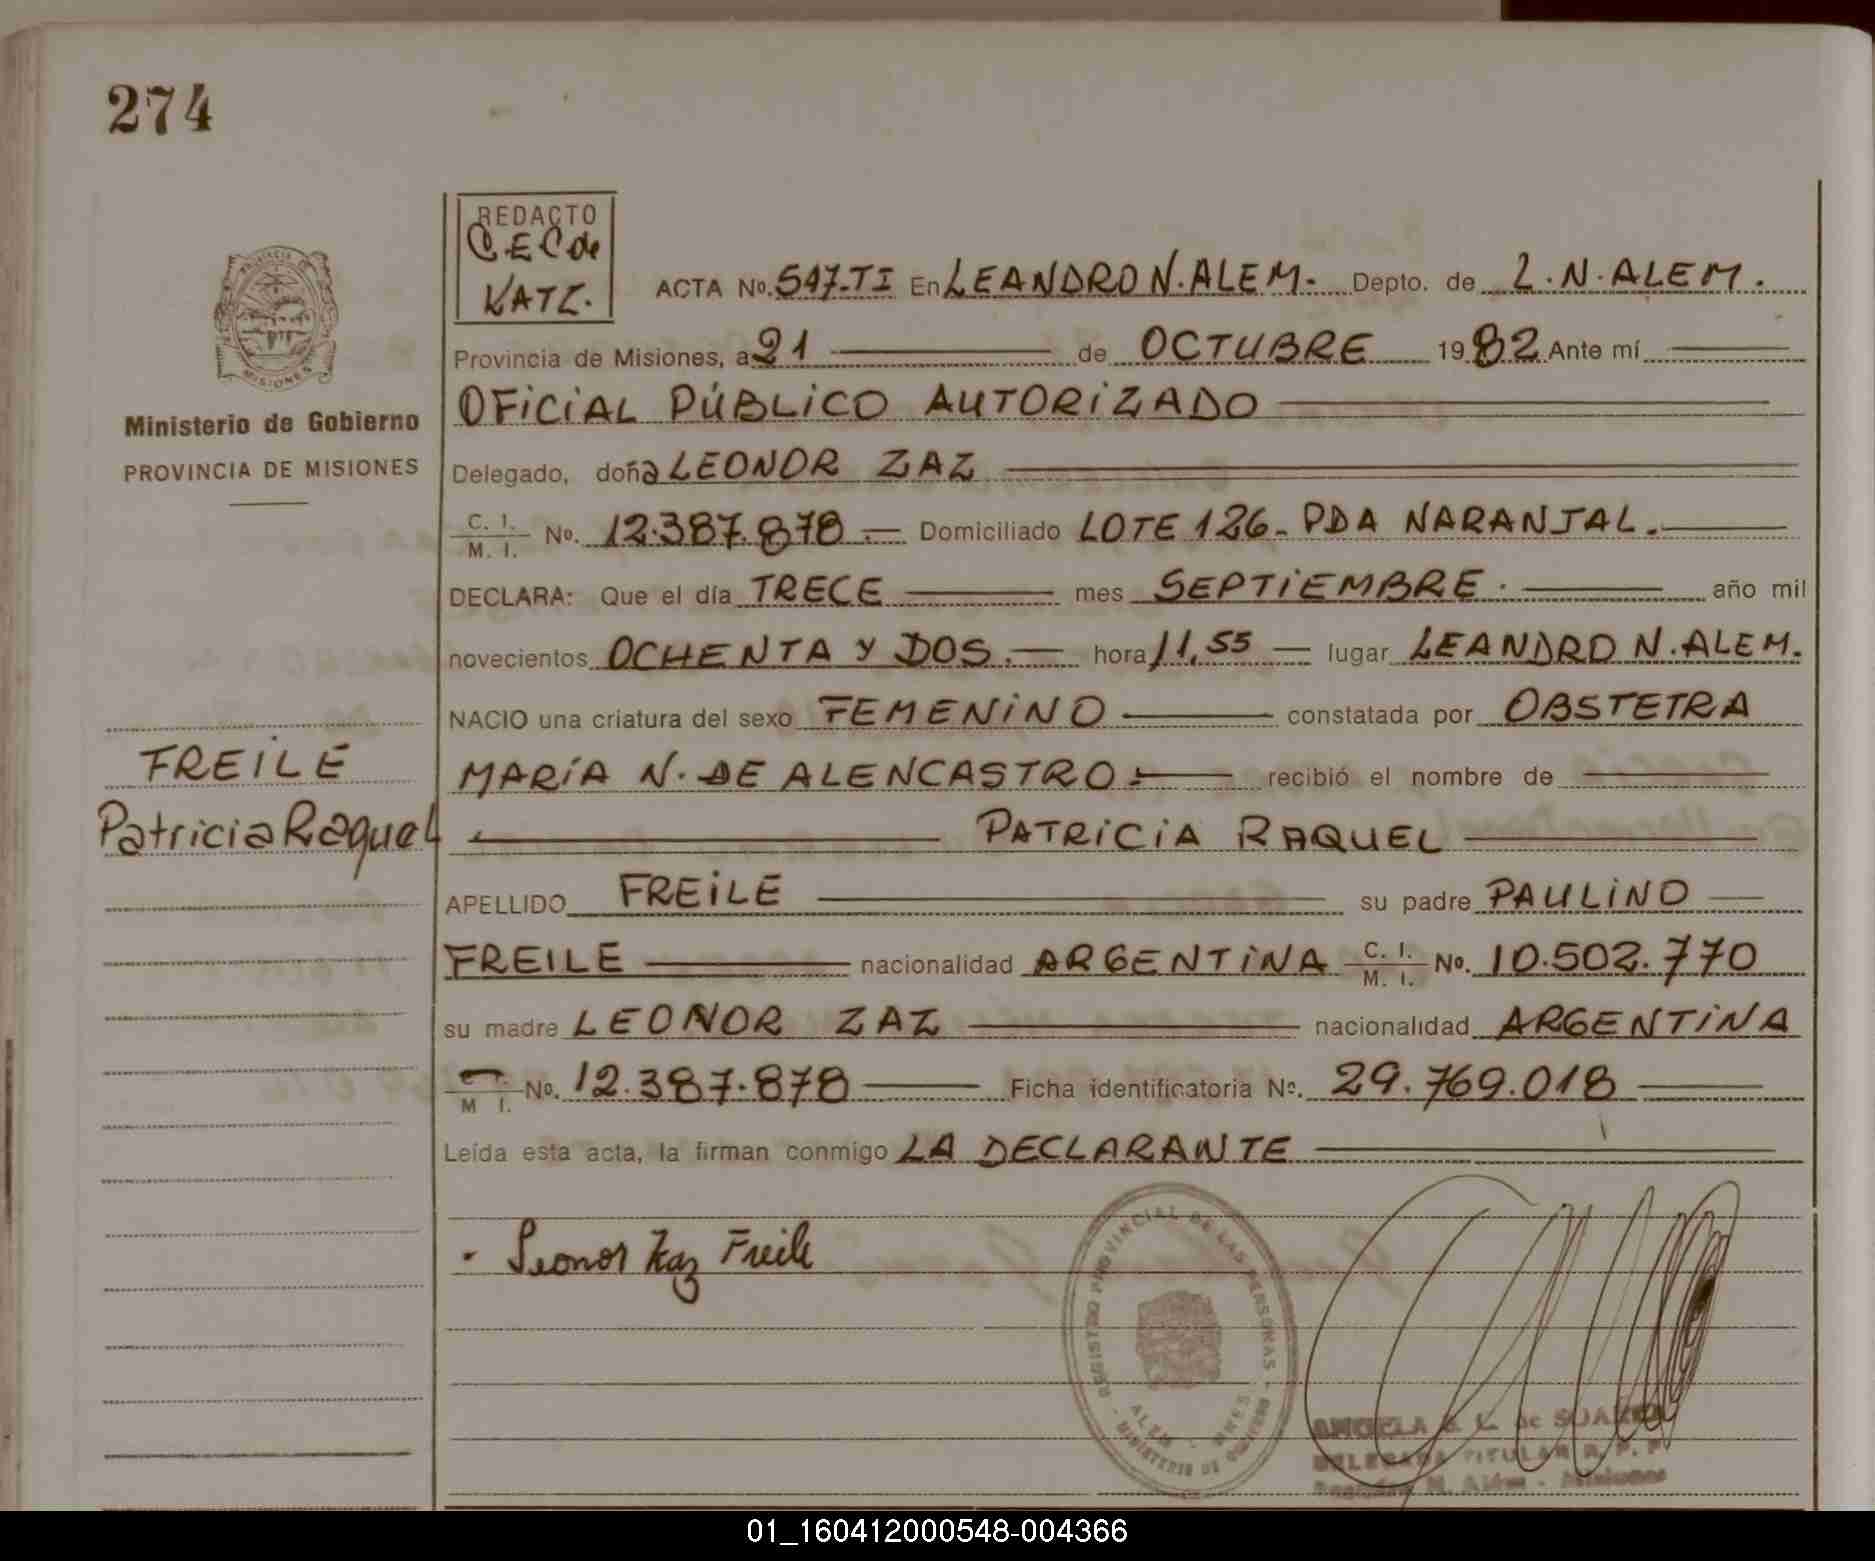 274
REDACTO
C.E.C de
KATZ.
ACTA No. 547-TI En LEANDRO N. ALEM. Depto. de L. N. ALEM.
Provincia de Misiones, a 21 de OCTUBRE 1982 Ante mí
OFICIAL PÚBLICO AUTORIZADO
Ministerio de Gobierno
PROVINCIA DE MISIONES
Delegado, doña LEONOR ZAZ
C. I. M. I. No. 12.387.878.- Domiciliado LOTE 126- PDA NARANJAL.
DECLARA: Que el día TRECE mes SEPTIEMBRE. año mil
novecientos OCHENTA Y DOS.- hora 11,55 lugar LEANDRO N. ALEM.
NACIO una criatura del sexo FEMENINO constatada por OBSTETRA
MARÍA N. DE ALENCASTRO.- recibió el nombre de
FREILE
Patricia Raquel
PATRICIA RAQUEL
APELLIDO FREILE su padre PAULINO
FREILE nacionalidad ARGENTINA C. I. M. I. No. 10.502.770
su madre LEONOR ZAZ nacionalidad ARGENTINA
M I. No. 12.387.878 Ficha identificatoria No. 29.769.018
Leída esta acta, la firman conmigo LA DECLARANTE
Leonor Zaz Freile
REGISTRO PROVINCIAL DE LAS PERSONAS
ALEM - MNES
MINISTERIO DE GOBIERNO
ANGELA S. L. de SUAREZ
DELEGADA TITULAR R. P. P.
N. Alem - Misiones
01_160412000548-004366